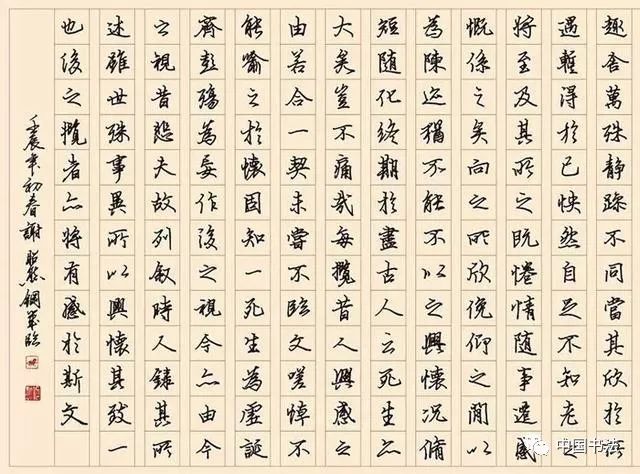 趣舍萬殊靜躁不同當其欣於所
遇暫得於己怏然自足不知老
將至及其所之既惓情隨事遷感
慨係之矣向之所欣俛仰之間以
為陳迹猶不能不以之興懷況脩
短隨化終期於盡古人云死生亦
大矣豈不痛哉每攬昔人興感之
由若合一契未嘗不臨文嗟悼不
能喻之於懷固知一死生為虛誕
齊彭殤為妄作後之視今亦由今
之視昔悲夫故列敘時人錄其所
述雖世殊事異所以興懷其致一
也後之攬者亦將有感於斯文
壬辰年初春謝鋼筆臨
中国书法